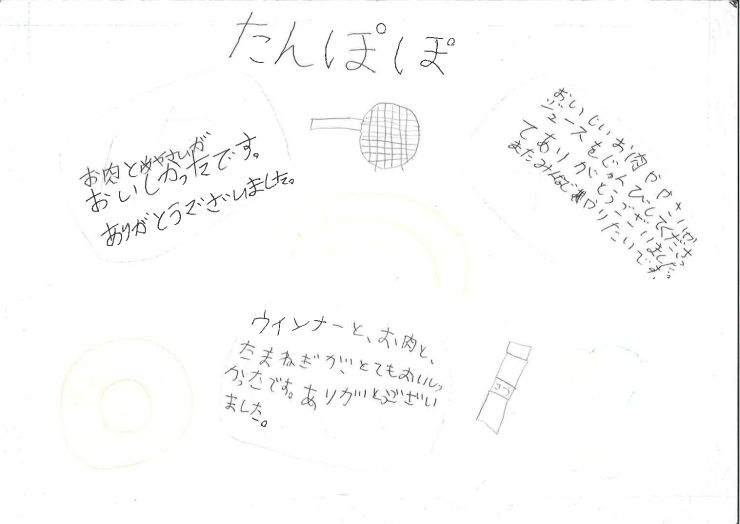 たんぽぽ
お肉とややさいが
おいしかったです。
ありがとうございました。
おいしいお肉ややさい
ジュースをじゅんびしてくださっ
てありがとうございました。
またみんなでやりたいです。
ウインナーと、お肉と、
たまねぎが、とてもおいしっ
かったです。ありがとうござい
ました。
ココ